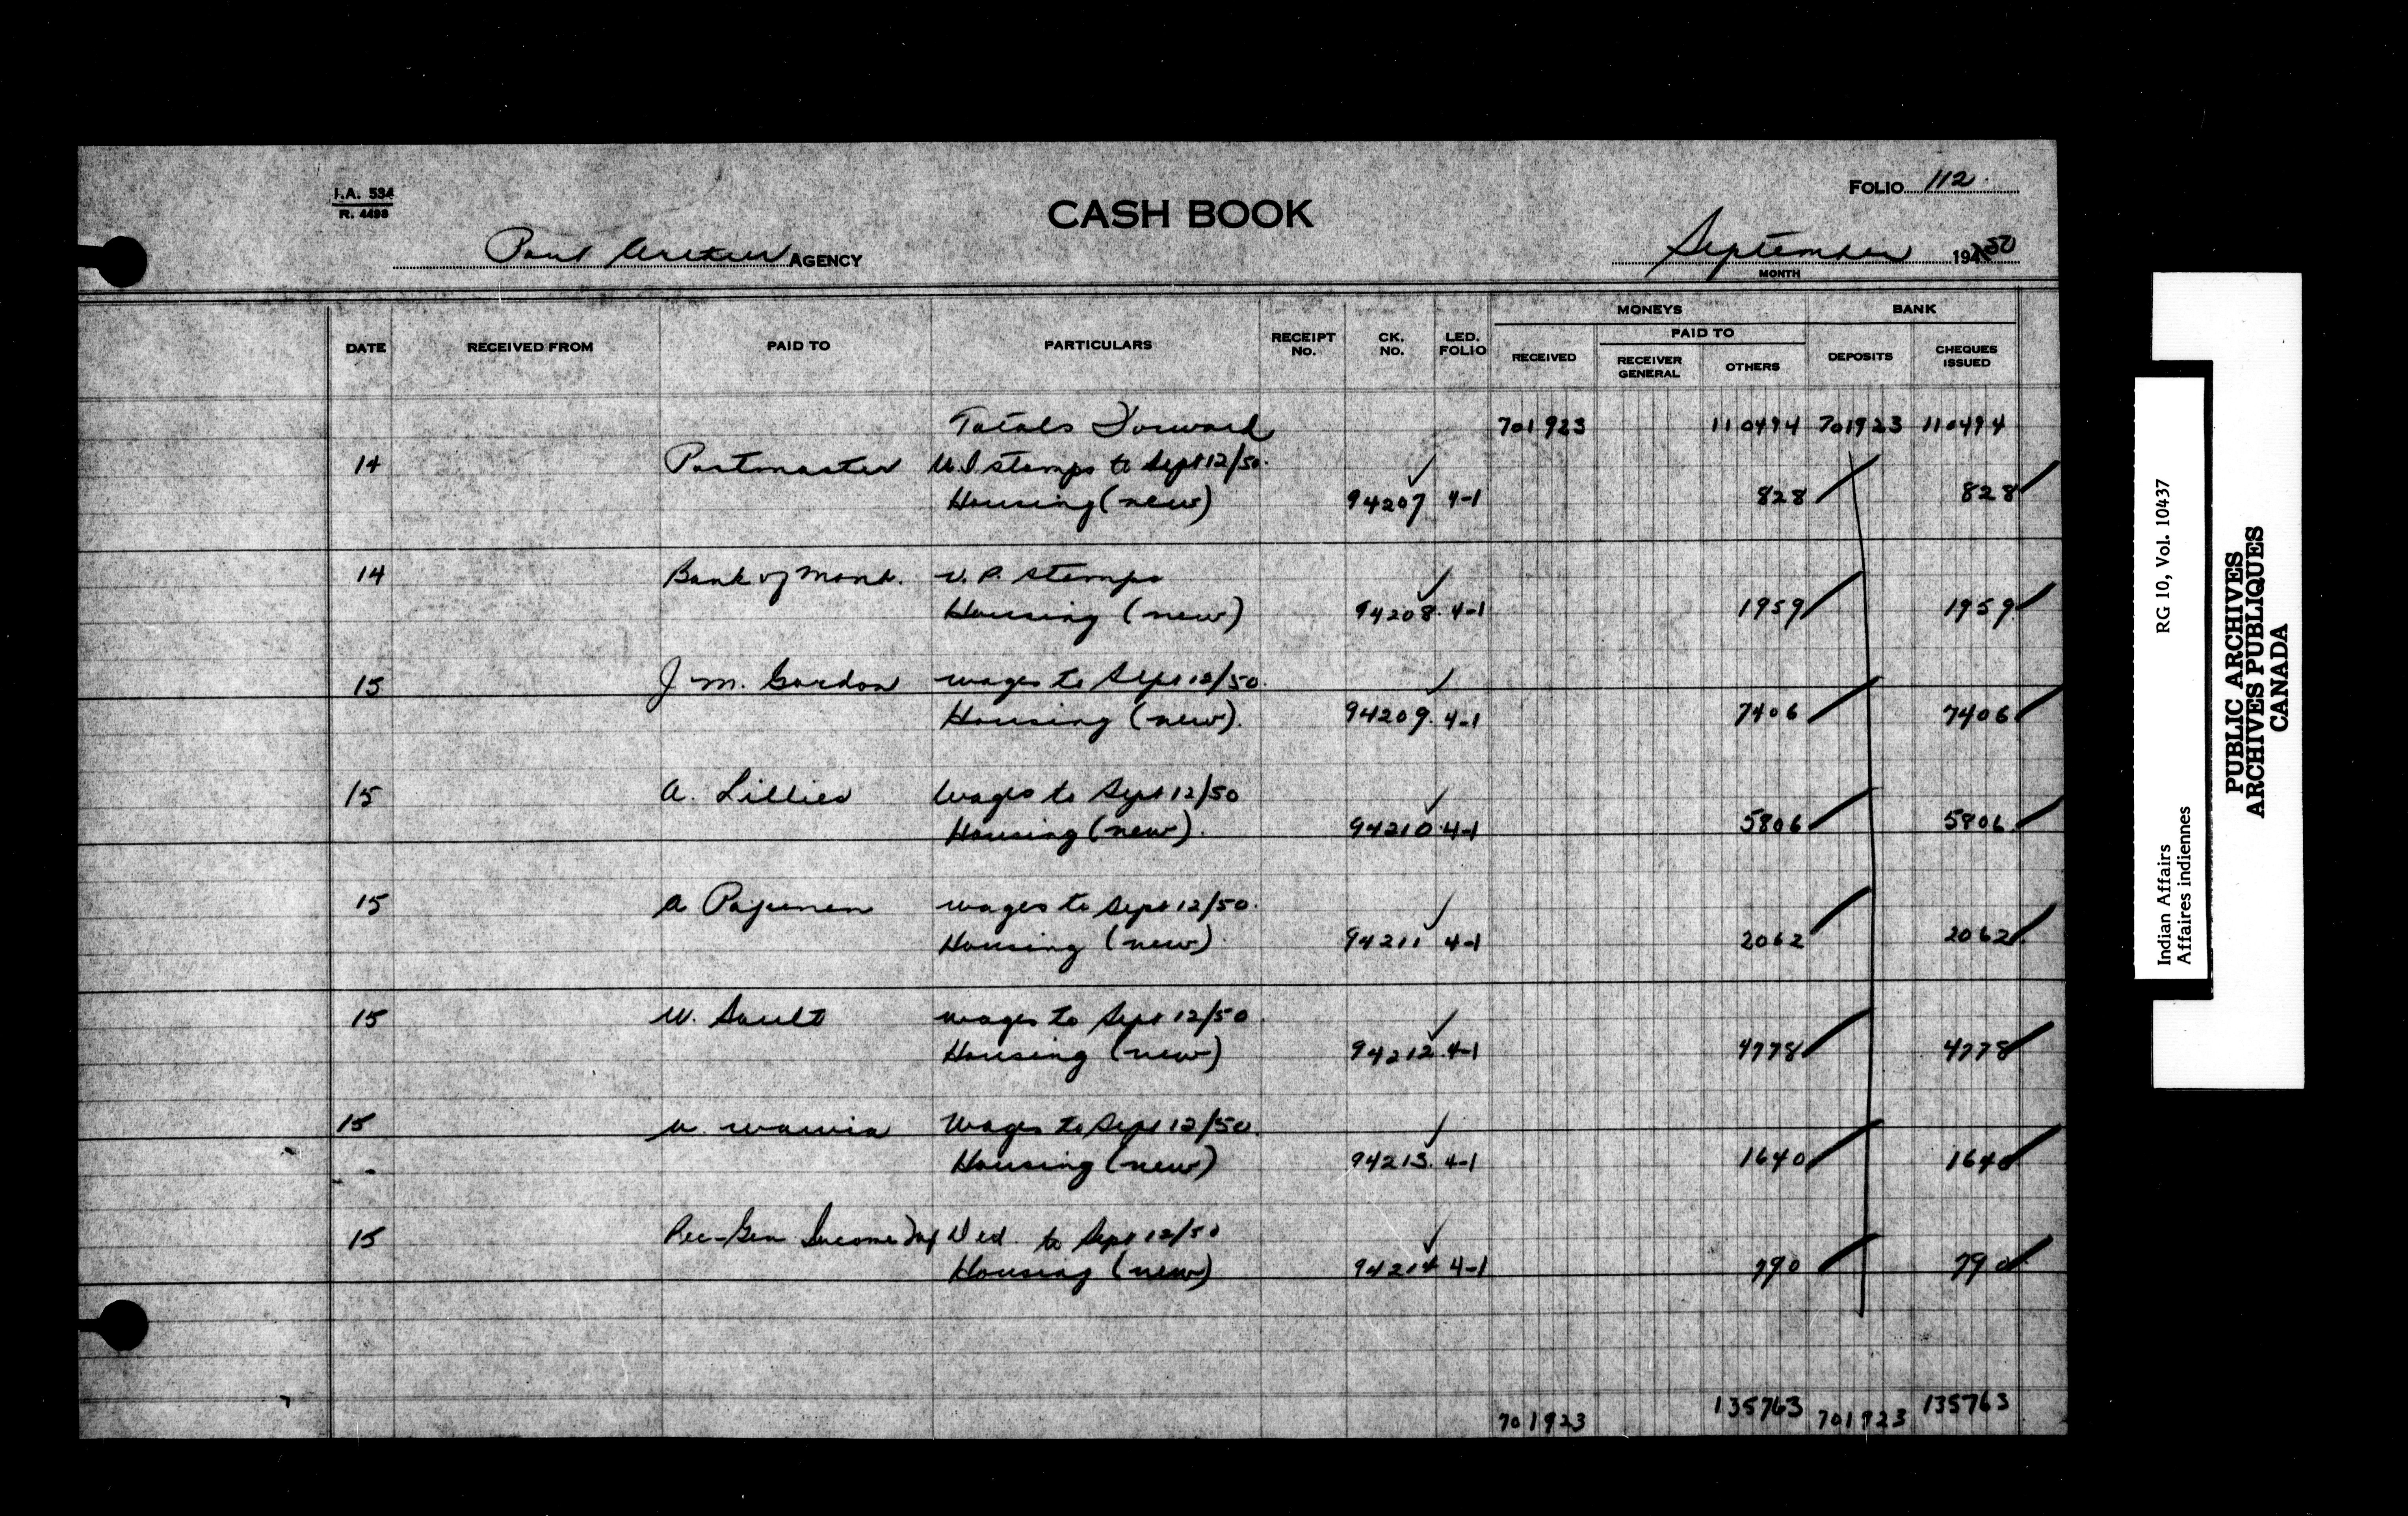 I.A. 534
R. 4498
CASH BOOK
FOLIO 112
Port Arthur AGENCY
September 1950
MONTH
DATE RECEIVED FROM PAID TO PARTICULARS RECEIPT NO. CK. NO. LED. FOLIO MONEYS BANK
RECEIVED PAID TO DEPOSITS CHEQUES ISSUED
RECEIVER GENERAL OTHERS
Totals Forward 701923 110494 701923 110494
14 Postmaster U.I stamps to Sept 12/50.
Housing (new) 94207 4-1 828 828
14 Bank of Mont. stamps
Housing (new) 94208. 4-1 1959 1959
15 J.M. Gordon wages to Sept 12/50.
Housing (new). 94209. 4-1 7406 7406
15 A. Lillies Wages to Sept 12/50
Housing (new). 94210. 4-1 5806 5806.
15 A wages to Sept 12/50.
Housing (new). 94211 4-1 2062 2062
15 W. Sault wages to Sept 12/50
Housing (new) 94212. 4-1 4778 4778
15 Wages to Sept 12/50.
Housing (new) 94213. 4-1 1640 1640
15 Rec-Gen Income Tax Ded. to Sept 12/50
Housing (new) 94214 4-1 790 790
701923 135763 701923 135763
Indian Affairs RG 10, Vol. 10437
Affaires indiennes
PUBLIC ARCHIVES
ARCHIVES PUBLIQUES
CANADA